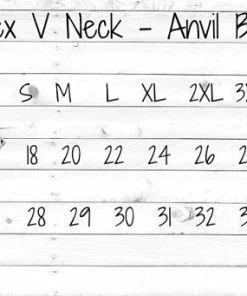 V Neck - Anvil
S M L XL 2XL
18 20 22 24 26
28 29 30 31 32